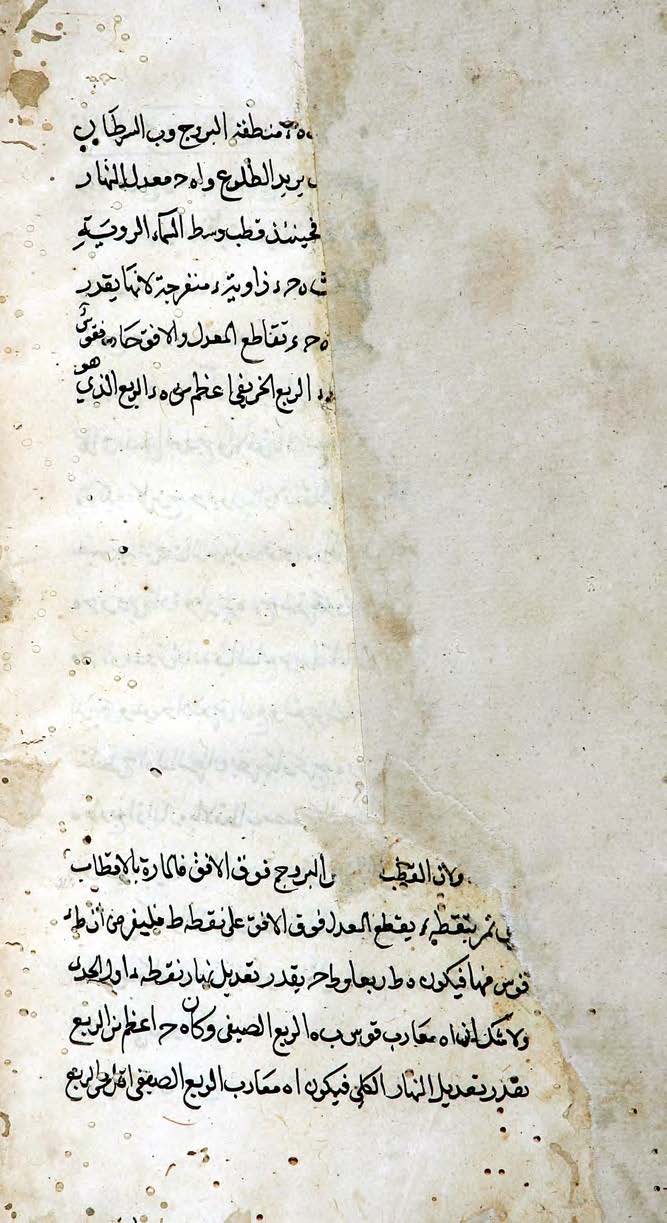 منطقة البروج وب السرطان
يريد الطلوع واه ح معدل النهار
فحينئذ قطب وسط السماء الروية
ه ح ء زاوية ء منفرجة لانها بقدر
ه ح ء تقاطع المعدل والافق حادة فقوس
الربع الخريفي اعظم من ه ء الربع الذي هو
ولان القطب البروج فوق الافق فالمارة بالاقطاب
تمر بنقطة ء يقطع المعدل فوق الافق على نقطة ط فليفرض ان ط ء
قوس منها فيكون ه ط ربعا وط ح بقدر تعديل نهار نقطة ء اول الجدي
ولا شك ان اه مغارب قوس ب ه الربع الصيفي وكان ه ح اعظم من الربع
بقدر تعديل النهار الكلي فيكون اه مغارب الربع الصيفي اقل من الربع